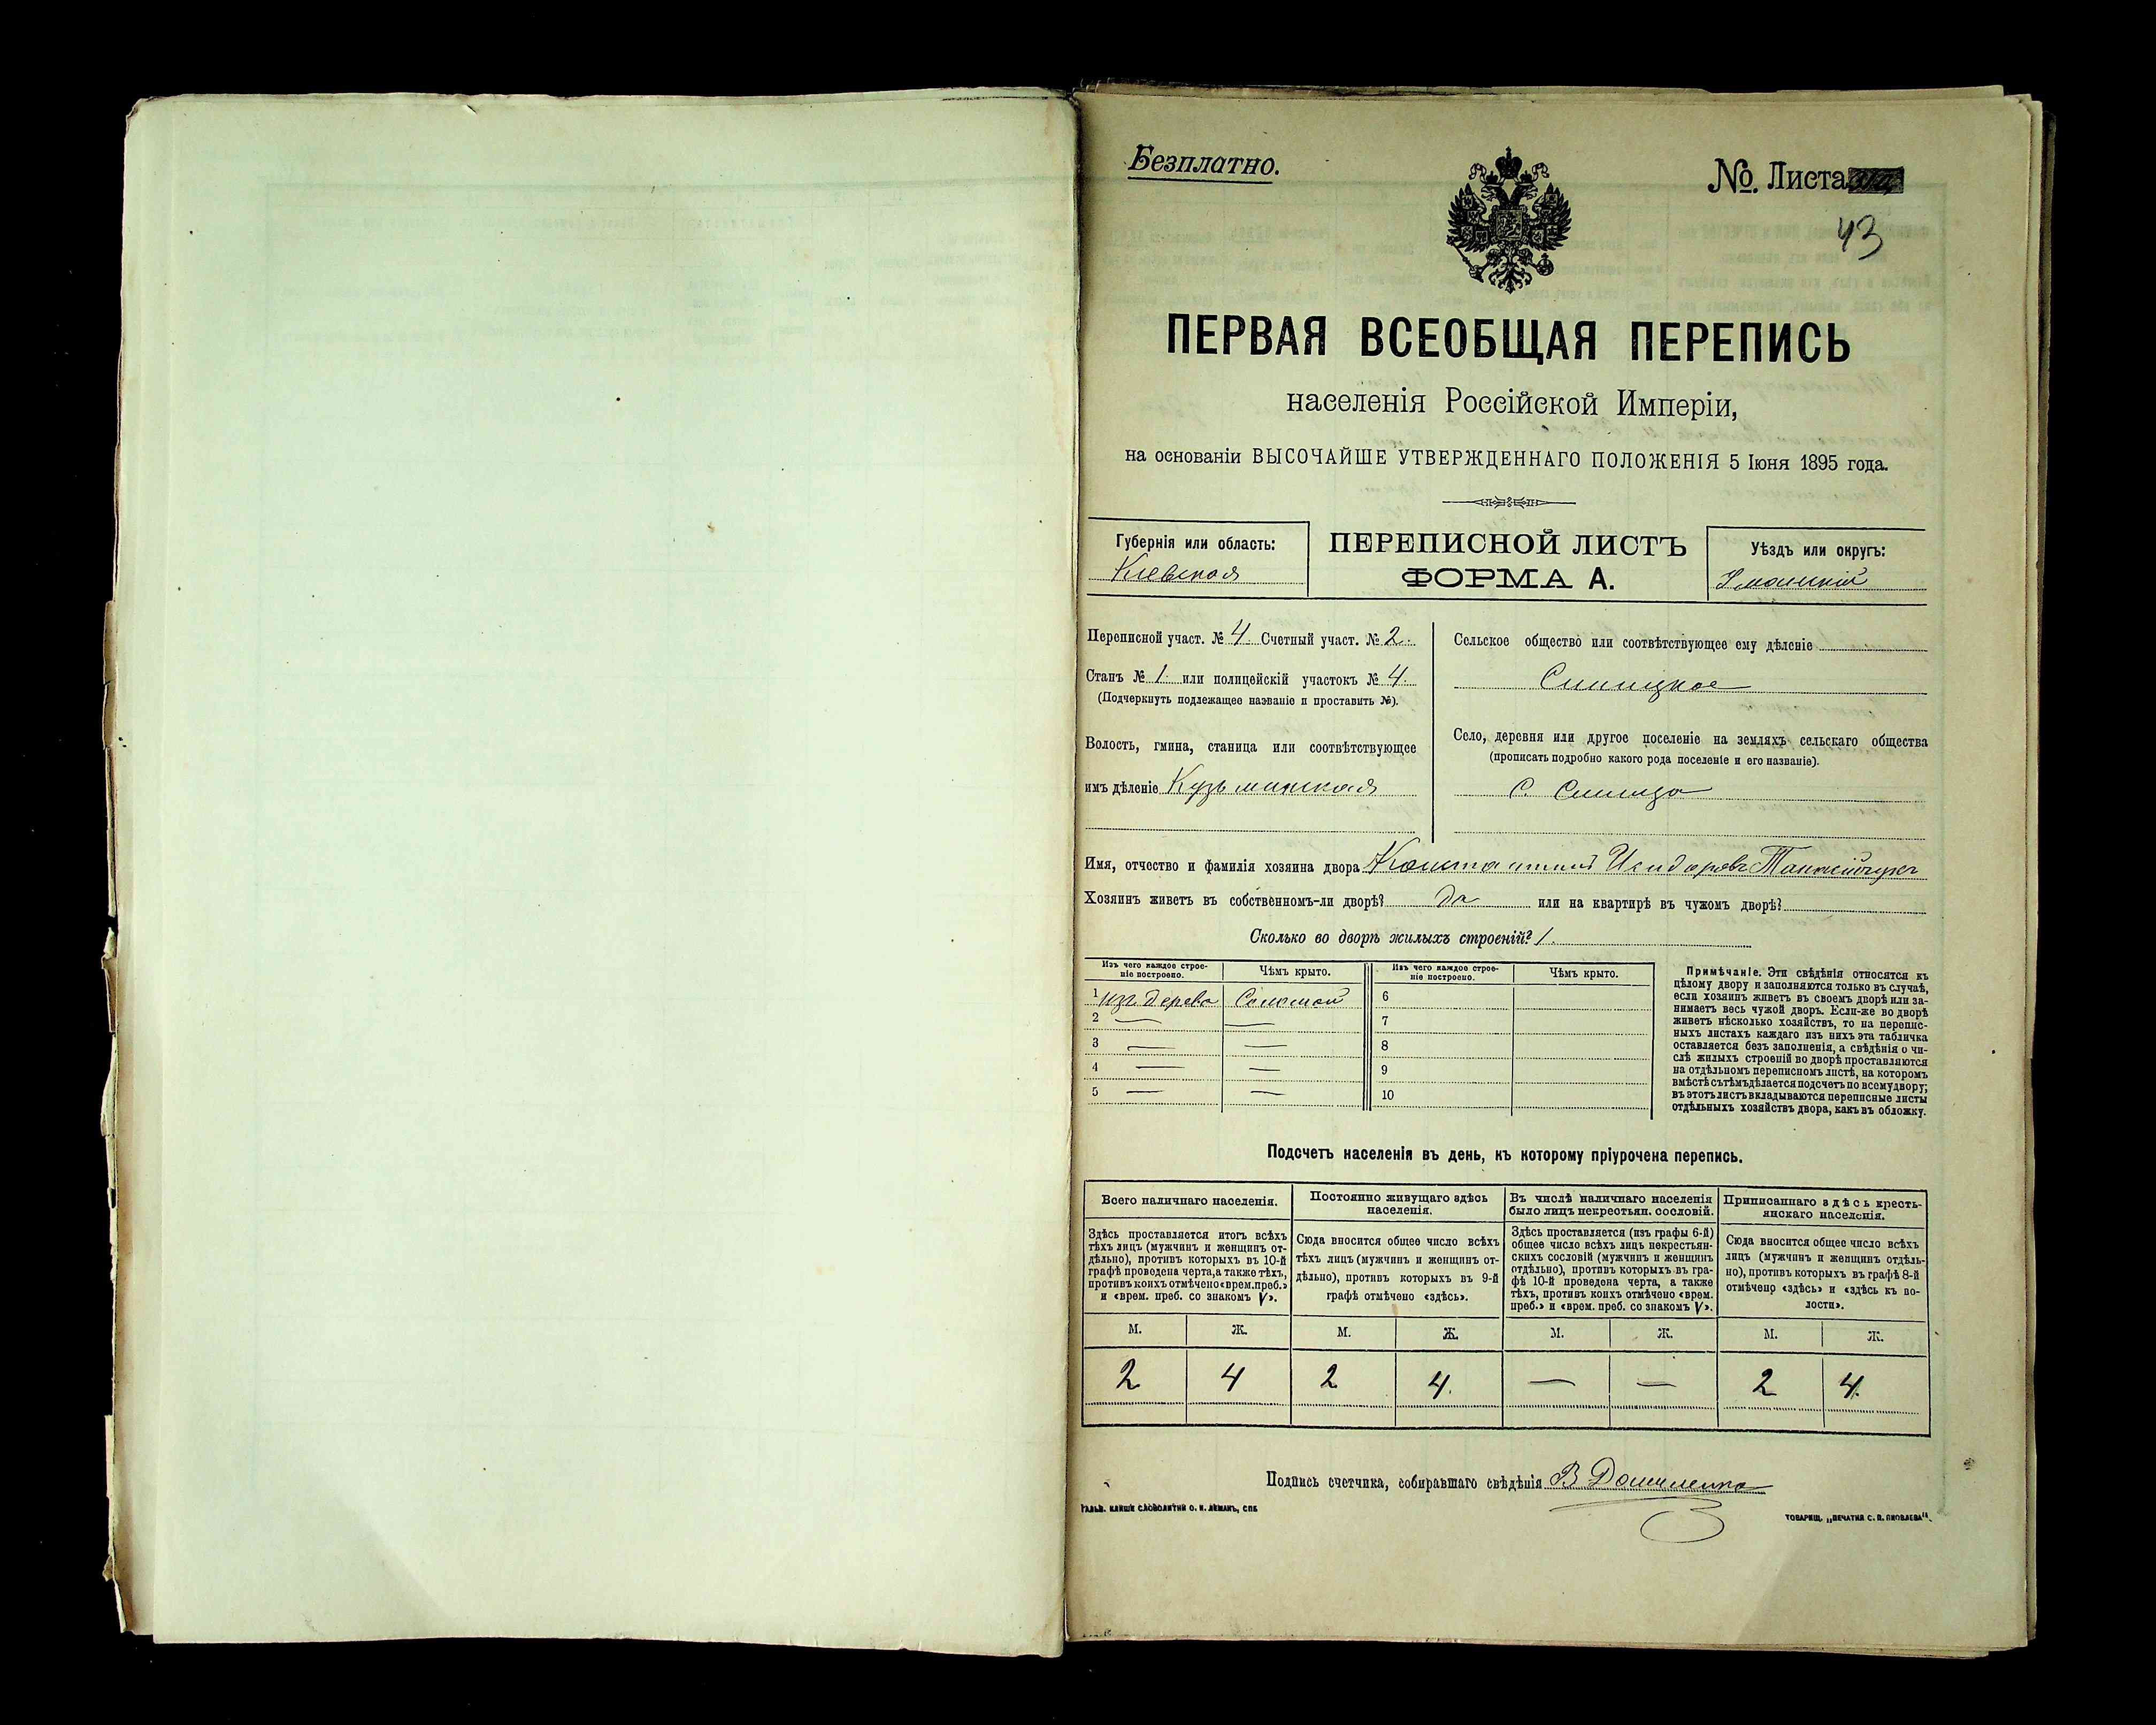 Безплатно.
№ Листа
43
ПЕРВАЯ ВСЕОБЩАЯ ПЕРЕПИСЬ
населенія Россійской Имперіи,
на основаніи ВЫСОЧАЙШЕ УТВЕРЖДЕННАГО ПОЛОЖЕНІЯ 5 Іюня 1895 года.
Губернія или область:
Кіевская
ПЕРЕПИСНОЙ ЛИСТЪ
ФОРМА А.
Уѣздъ или округъ:
Уманскій
Переписной участ. № 4. Счетный участ. № 2.
Станъ № 1. или полицейскій участокъ № 4.
(Подчеркнуть подлежащее названіе и проставить №).
Волость, гмина, станица или соотвѣтствующее
имъ дѣленіе Кузьминская
Сельское общество или соотвѣтствующее ему дѣленіе
Синицкое
Село, деревня или другое поселеніе на земляхъ сельскаго общества
(прописать подробно какого рода поселеніе и его названіе).
С. Синица
Имя, отчество и фамилія хозяина двора Константинъ Исидоровъ
Хозяинъ живетъ въ собственномъ-ли дворѣ? да или на квартирѣ въ чужомъ дворѣ?
Сколько во дворѣ жилыхъ строеній? 1.
Изъ чего каждое строе-
ніе построено.
Чѣмъ крыто.
Изъ чего каждое строе-
ніе построено.
Чѣмъ крыто.
1 изъ дерева Соломой 6
2 — — 7
3 — — 8
4 — — 9
5 — — 10
Примѣчаніе. Эти свѣдѣнія относятся къ
цѣлому двору и заполняются только въ случаѣ,
если хозяинъ живетъ въ своемъ дворѣ или за-
нимаетъ весь чужой дворъ. Если-же во дворѣ
живетъ нѣсколько хозяйствъ, то на перепис-
ныхъ листахъ каждаго изъ нихъ эта табличка
оставляется безъ заполненія, а свѣдѣнія о чи-
слѣ жилыхъ строеній во дворѣ проставляются
на отдѣльномъ переписномъ листѣ, на которомъ
вмѣстѣ съ тѣмъ дѣлается подсчетъ по всему двору;
въ этотъ листъ вкладываются переписные листы
отдѣльныхъ хозяйствъ двора, какъ въ обложку.
Подсчетъ населенія въ день, къ которому пріурочена перепись.
Всего наличнаго населенія.
Здѣсь проставляется итогъ всѣхъ
тѣхъ лицъ (мужчинъ и женщинъ от-
дѣльно), противъ которыхъ въ 10-й
графѣ проведена черта, а также тѣхъ,
противъ коихъ отмѣчено «врем. преб.»
и «врем. преб. со знакомъ V».
Постоянно живущаго здѣсь
населенія.
Сюда вносится общее число всѣхъ
тѣхъ лицъ (мужчинъ и женщинъ от-
дѣльно), противъ которыхъ въ 9-й
графѣ отмѣчено «здѣсь».
Въ числѣ наличнаго населенія
было лицъ некрестьян. сословій.
Здѣсь проставляется (изъ графы 6-й)
общее число всѣхъ лицъ некрестьян-
скихъ сословій (мужчинъ и женщинъ
отдѣльно), противъ которыхъ въ гра-
фѣ 10-й проведена черта, а также
тѣхъ, противъ коихъ отмѣчено «врем.
преб.» и «врем. преб. со знакомъ V».
Приписаннаго здѣсь кресть-
янскаго населенія.
Сюда вносится общее число всѣхъ
лицъ (мужчинъ и женщинъ отдѣль-
но), противъ которыхъ въ графѣ 8-й
отмѣчено «здѣсь» и «здѣсь къ во-
лости».
М. Ж. М. Ж. М. Ж. М. Ж.
2 4 2 4. — — 2 4.
Подпись счетчика, собиравшаго свѣдѣнія В Даниленко
ГАЛЬВ. КЛИШЕ СЛОВОЛИТНИ О. И. ЛЕМАНЪ, СПБ
ТОВАРИЩ. „ПЕЧАТНЯ С. П. ЯКОВЛЕВА".